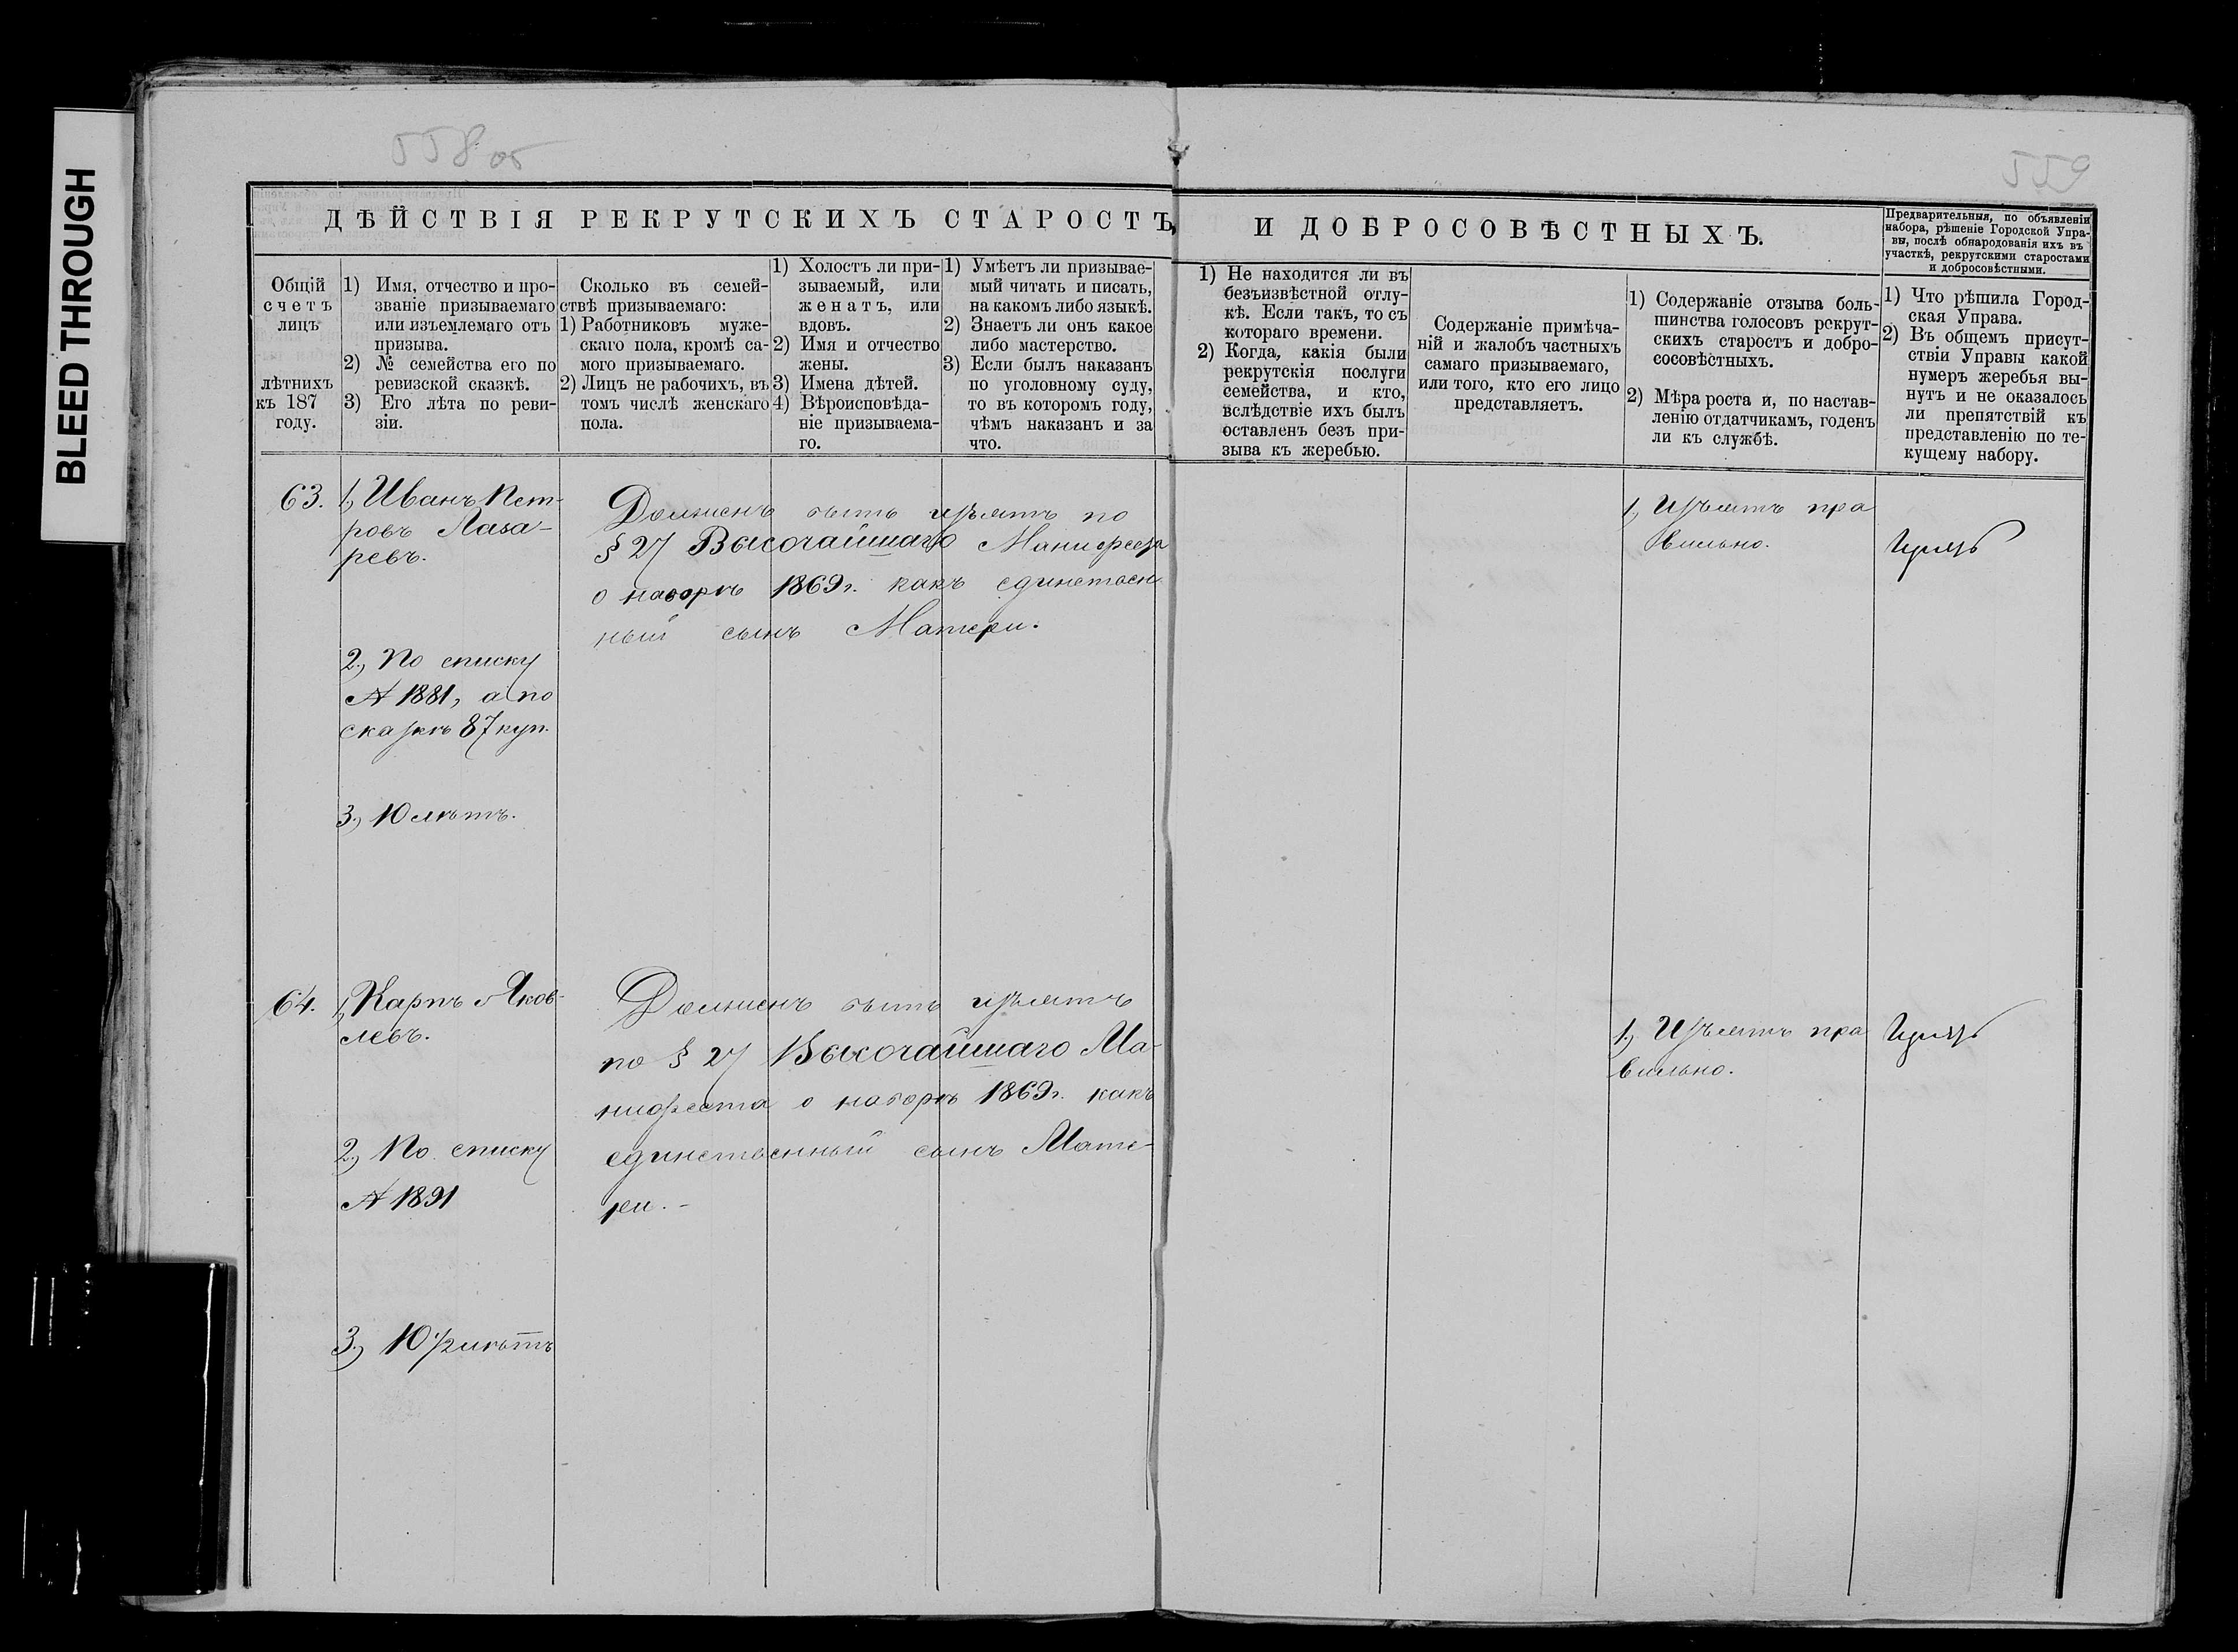 BLEED THROUGH
558 об
559
ДѢЙСТВІЯ РЕКРУТСКИХЪ СТАРОСТЪ
И ДОБРОСОВѢСТНЫХЪ.
Общій
счетъ
лицъ
лѣтнихъ
къ 187
году.
1) Имя, отчество и про-
званіе призываемаго
или изъемлемаго отъ
призыва.
2) № семейства его по
ревизской сказкѣ.
3) Его лѣта по реви-
зіи.
Сколько въ семей-
ствѣ призываемаго:
1) Работниковъ муже-
скаго пола, кромѣ са-
мого призываемаго.
2) Лицъ не рабочихъ, въ
томъ числѣ женскаго
пола.
1) Холостъ ли при-
зываемый, или
женатъ, или
вдовъ.
2) Имя и отчество
жены.
3) Имена дѣтей.
4) Вѣроисповѣда-
ніе призываема-
го.
1) Умѣетъ ли призывае-
мый читать и писать,
на какомъ либо языкѣ.
2) Знаетъ ли онъ какое
либо мастерство.
3) Если былъ наказанъ
по уголовному суду,
то въ которомъ году,
чѣмъ наказанъ и за
что.
1) Не находится ли въ
безъизвѣстной отлу-
кѣ. Если такъ, то съ
котораго времени.
2) Когда, какія были
рекрутскія послуги
семейства, и кто,
вслѣдствіе ихъ былъ
оставленъ безъ при-
зыва къ жеребью.
Содержаніе примѣча-
ній и жалобъ частныхъ
самаго призываемаго,
или того, кто его лицо
представляетъ.
1) Содержаніе отзыва боль-
шинства голосовъ рекрут-
скихъ старостъ и добро-
сосовѣстныхъ.
2) Мѣра роста и, по настав-
ленію отдатчикамъ, годенъ
ли къ службѣ.
Предварительныя, по объявленіи
набора, рѣшеніе Городской Упра-
вы, послѣ обнародованія ихъ въ
участкѣ, рекрутскими старостами
и добросовѣстными.
1) Что рѣшила Город-
ская Управа.
2) Въ общемъ присут-
ствіи Управы какой
нумеръ жеребья вы-
нутъ и не оказалось
ли препятствій къ
представленію по те-
кущему набору.
63.
1, Иванъ Пет-
ровъ Лаза-
ревъ.
2, По списку
№ 1881, а по
сказкѣ 87 куп.
3, 10 лѣтъ.
Долженъ быть изъятъ по
§ 27 Высочайшаго Манифеста
о наборѣ 1869 г. какъ единствен
ный сынъ Матери.
1, Изъятъ пра
вильно.
64.
1, Карпъ Яков-
левъ.
2, По списку
№ 1891
3, 10 1/2 лѣтъ
Долженъ быть изъятъ
по § 27 Высочайшаго Ма-
нифеста о наборѣ 1869 г. какъ
единственный сынъ Мате-
ри.-
1, Изъятъ пра
вильно.